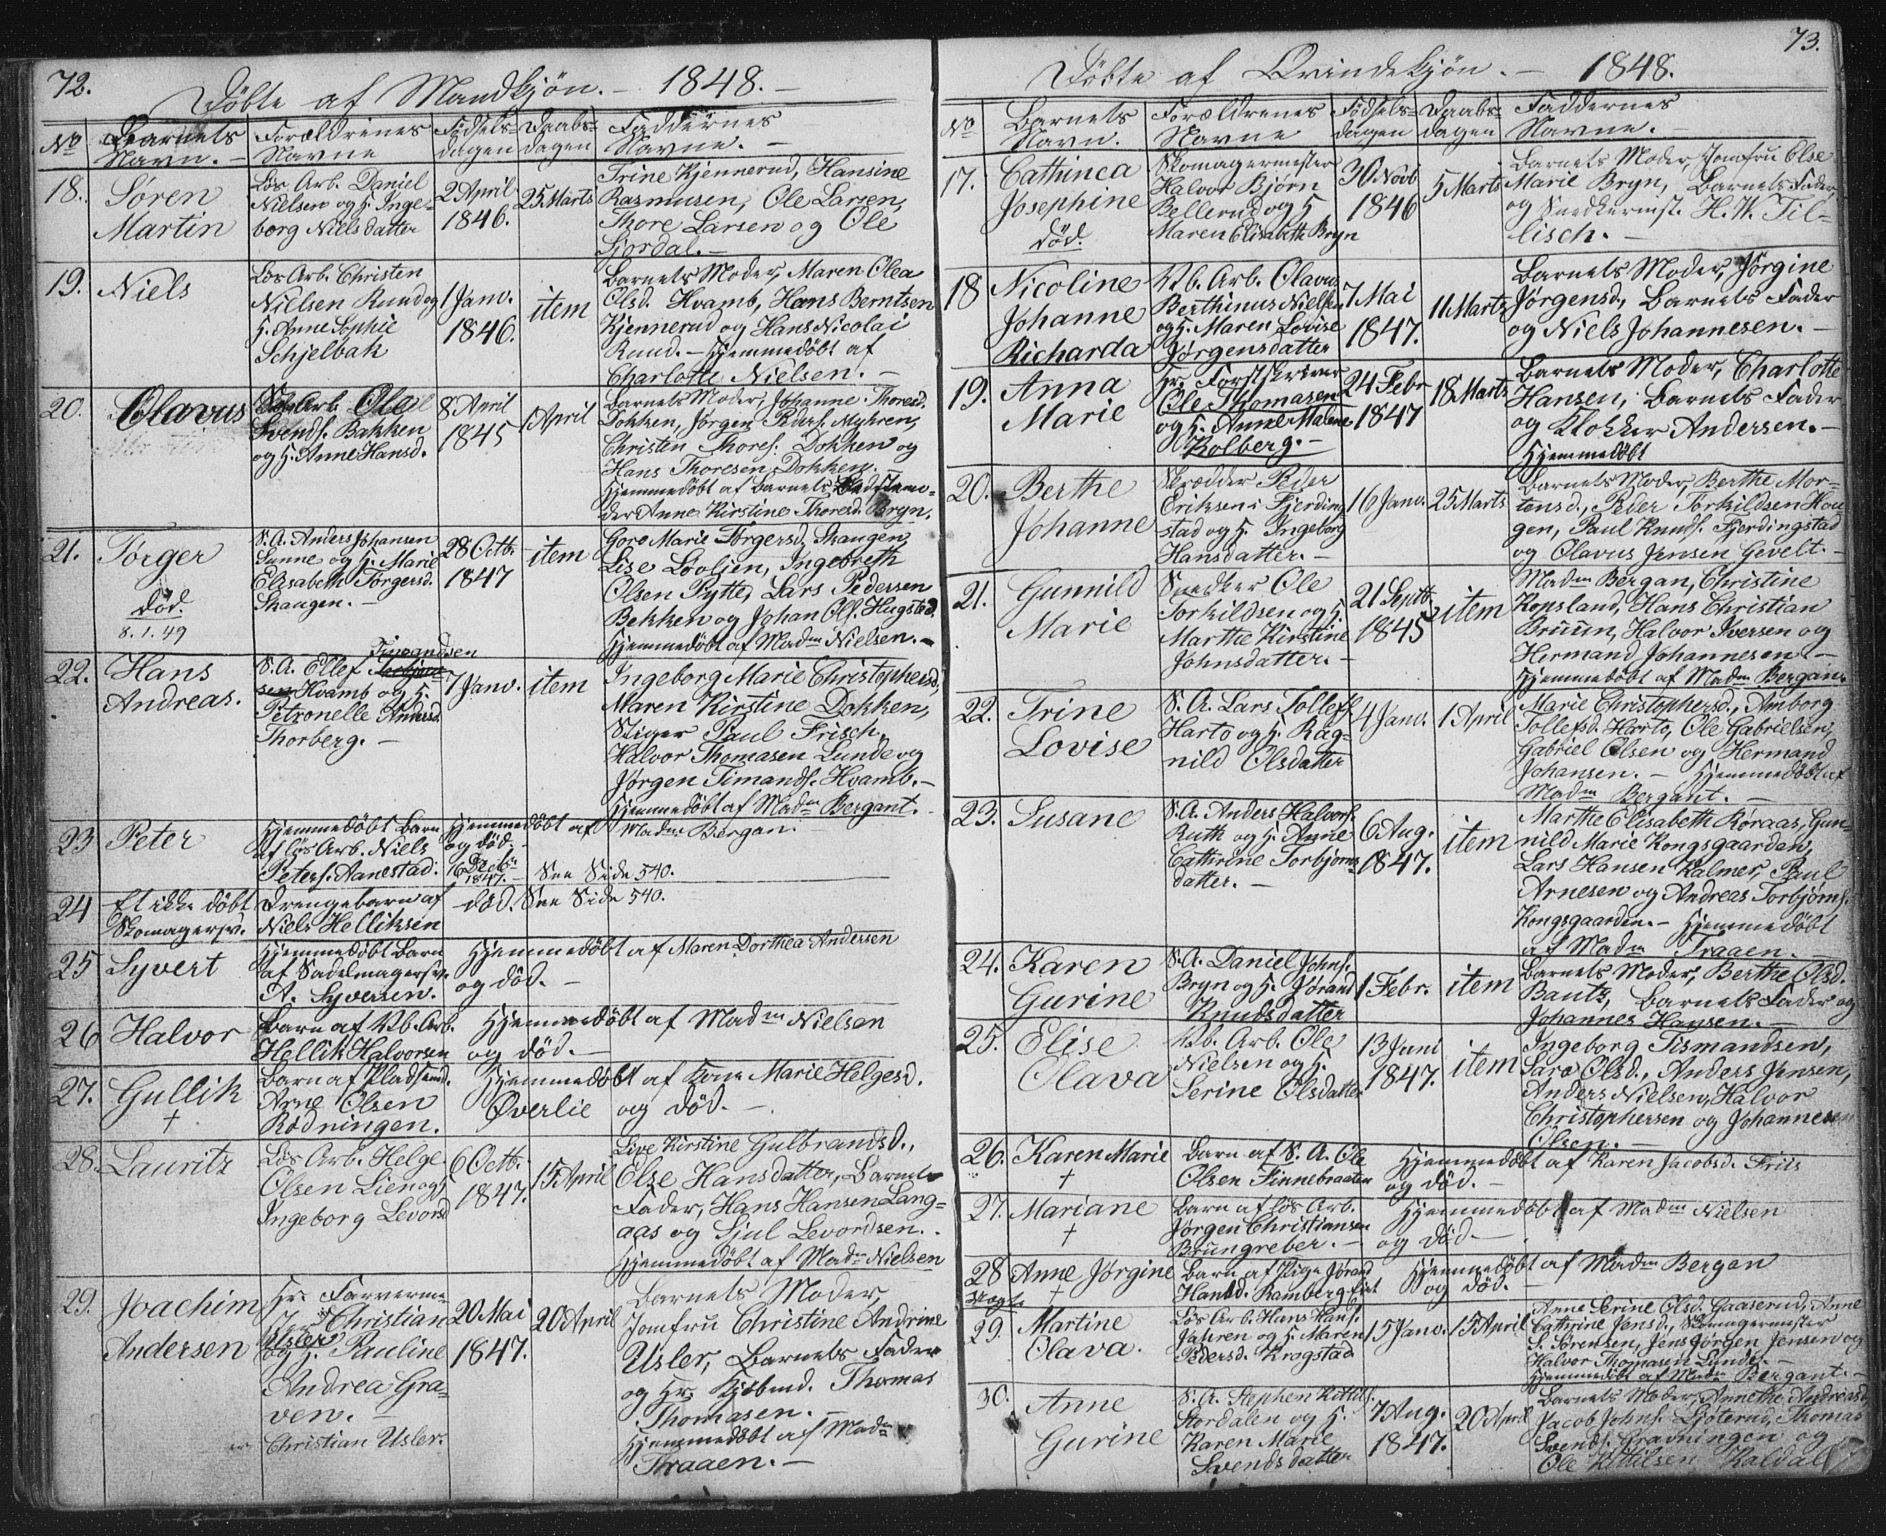 72.
Døbte af Mandkjøn. – 1848. –
No
Barnets Navn. –
Forældrenes Navne
Fødselsdagen
Daabsdagen
Faddernes Navne. –
18.
Søren
Martin
Løs Arb. Daniel
Nielsen og H. Inge-
borg Nielsdatter
2 April
1846.
25 Marts
Trine Kjennerud, Hansine
Rasmusen, Ole Larsen,
Thore Larsen og Ole
Fjordal. –
19.
Niels
Løs Arb. Christen
Nielsen Rund og
H. Anne Sophie
Schjelbak
1 Janv.
1846.
item
Barnets Moder, Maren Olea
Olsd. Kvamb, Hans Berntsen
Kjennerud og Hans Nicolai
Rund. – Hjemmedøbt af
Charlotte Nielsen. –
20.
Olavus
Arb. Ole
Svends. Bakken
og H. Anne Hansd.
8 April
1845
1 April
Barnets Moder, Johanne Thoresd.
Dokken, Jørgen Peders. Myhren,
Christen Thores. Dokken og
Hans Thoresen Dokken.
Hjemmedøbt af Barnets
der Anne Kirstine Thoresd. Bryn.
21.
Torger
død
8.1.49
S. A. Anders Johansen
Sunne og H. Marie
Elisabeth Torgersd.
Skaugen. –
28 Octb.
1847
item
Goro Marie Torgersd. Skaugen,
Lise Løvlien, Ingebreth
Olsen Pytte, Lars Pedersen
Bekken og Johan Ols. Hugstad.
Hjemmedøbt af Madm Nielsen. –
22.
Hans
Andreas.
Timandsen
S. A. Ellef
Hvamb og H.
Petronelle Andersd.
Thorberg. –
7 Janv.
item
Ingeborg Marie Christophersd,
Maren Kirstine Dokken,
Stiger Paul Frisch,
Halvor Thomasen Lunde og
Jørgen Timands. Hvamb. –
Hjemmedøbt af Madm Bergant. –
23
Peter
Hjemmedøbt Barn
af løs Arb. Niels
Peters. Aanestad.
Hjemmedøbt af Madm Bergan.
og død. –
16 Decbr
1847. –
See Side 540.
24
Et ikke døbt Drengebarn af
Skomagersv. Niels Helliksen
død. See Side 540.
25
Syvert
Hjemmedøbt Barn
af Sadelmagersv.
A. Syversen.
Hjemmedøbt af Maren Dorthea Andersen
og død. –
26
Halvor
Barn af Vb. Arb.
Hellik Halvorsen
Hjemmedøbt af Madm Nielsen
og død. –
27.
Gullik
†
Barn af Pladsmd.
Arne Olsen
Rødningen.
Hjemmedøbt af Kone Marie Helgesd.
Øverlie og død. –
28.
Lauritz
Løs Arb. Helge
Olsen Lien og H.
Ingeborg Levord
6 Octb.
1847.
15 April
Live Kirstine Gulbrandsd.,
Else Hansdatter, Barnets
Fader, Hans Hansen Lang-
aas og Sjul Levordsen. –
Hjemmedøbt af Madm Nielsen
29.
Joachim
Andersen
Hr. Farverme-
Christian
Usler
og H. Pauline
Andrea Gra-
ven. –
Christian Usler.
20 Mai
1847.
20 April
Barnets Moder,
Jomfru Christine Andrine
Usler, Barnets Fader
og Hr. Kjøbmd. Thomas
Thomasen. –
Hjemmedøbt af Madm
Traaen. –
73.
Døbte af Qvindekjøn. – 1848.
No
Barnets Navn.
Forældrenes Navne
Fødselsdagen
Daabsdagen
Faddernes Navne. –
17.
Cathinca
Josephine
død.
Skomagermester
Halvor Bjørn
Bellerud og H.
Maren Elisabeth Bryn
30 Novb
1846
5 Marts
Barnets Moder, Jomfru Else
Marie Bryn, Barnets Fader
og Snedkermst. H. W. Til-
lisch. –
18
Nicoline
Johanne
Richarda
Vb. Arb. Olavus
Berthinus Nielsen
og H. Maren Lovise
Jørgensdatter
7 Mai
1847.
11 Marts
Barnets Moder, Jørgine
Jørgensd., Barnets Fader
og Niels Johannesen. –
19.
Anna
Marie
Hr. Forstskriver
Ole Thomasen
og H. Anne Malene
Kolberg. –
24 Febr
1847
18 Marts
Barnets Moder, Charlotte
Hansen, Barnets Fader
og Klokker Andersen. –
Hjemmedøbt
20.
Berthe
Johanne
Skrædder Peder
Eriksen i Fjerding-
stad og H. Ingeborg
Hansdatter. –
16 Janv.
25 Marts
Barnets Moder, Berthe Mor-
tensd., Peder Torkildsen Hou-
gen, Paul Knuds. Fjerdingstad
og Olavus Jensen Gevelt. –
21.
Gunnild
Marie
Snedker Ole
Torkildsen og H.
Marthe Kirstine
Johnsdatter. –
21 Septb.
1845
item
Madm Bergan, Christine
Ropsland, Hans Christian
Bruun, Halvor Iversen og
Hermand Johannesen –
Hjemmedøbt af Madm Bergan.
22.
Trine
Lovise
S. A. Lars Tollefs.
Harto og H. Rag-
nild Olsdatter
4 Janv.
1 April
Marie Christophersd., Amborg
Tollefsd. Harto, Ole Gabrielsen,
Gabriel Olsen og Hermand
Johansen. – Hjemmedøbt af
Madm Bergant. –
23.
Susane
S. A. Anders Halvors.
Ruth og H. Anne
Cathrine Torbjørns-
datter. –
6 Aug.
1847.
item
Marthe Elisabeth Røraas, Gun-
nild Marie Kongsgaarden,
Lars Hansen Kalmer, Paul
Arnesen og Andreas Torbjørns.
Kongsgaarden. – Hjemmedøbt
af Madm Traaen.
24.
Karen
Gurine
S. A. Daniel Johns.
Bryn og H. Jørand
Knudsdatter
1 Febr.
item
Barnets Moder, Berthe Olsd.
Bautz, Barnets Fader og
Johannes Hansen. –
25.
Elise
Olava
Vb. Arb. Ole
Nielsen og H.
Serine Olsdatter
13 Juni
1847.
item
Ingeborg Tismandsen,
Sara Olsd., Anders Jensen,
Anders Nielsen, Halvor
Christophersen og Johannesen
Olsen. –
26.
Karen Marie
†
Barn af S. A. Ole
Olsen Finnebraaten
Hjemmedøbt af Karen Jacobsd. Friis
og død. –
27.
Mariane
†
Barn af løs Arb.
Jørgen Christiansen
Brungreber. –
Hjemmedøbt af Madm Nielsen
og død. –
28
Uægte
Anne Jørgine
†
Barn af Pige Jørand
Hansd. Ramberg
Hjemmedøbt af Madm Bergan
og død. –
29.
Martine
Olava.
Løs Arb. Hans Hans.
Jahren og H. Maren
Pedersd. Krogstad
15 Janv.
15 April
Anne Serine Olsd. Gaaserud, Anne
Cathrine Jensd., Skomagermester
S. Sørensen, Jens Jørgen Jensen og
Halvor Thomasen Lunde. –
Hjemmedøbt af Madm Bergant. –
30.
Anne
Gurine
S. A. Stephen Kittils.
Stordalen og H.
Karen Marie
Svendsdatter
7 Aug.
1847.
20 April
Barnets Moder, Annethe Andreasd,
Jacob Johns. Ljøterud, Thomas
Svends. Gravningen og
Ole Kittilsen Kaldal